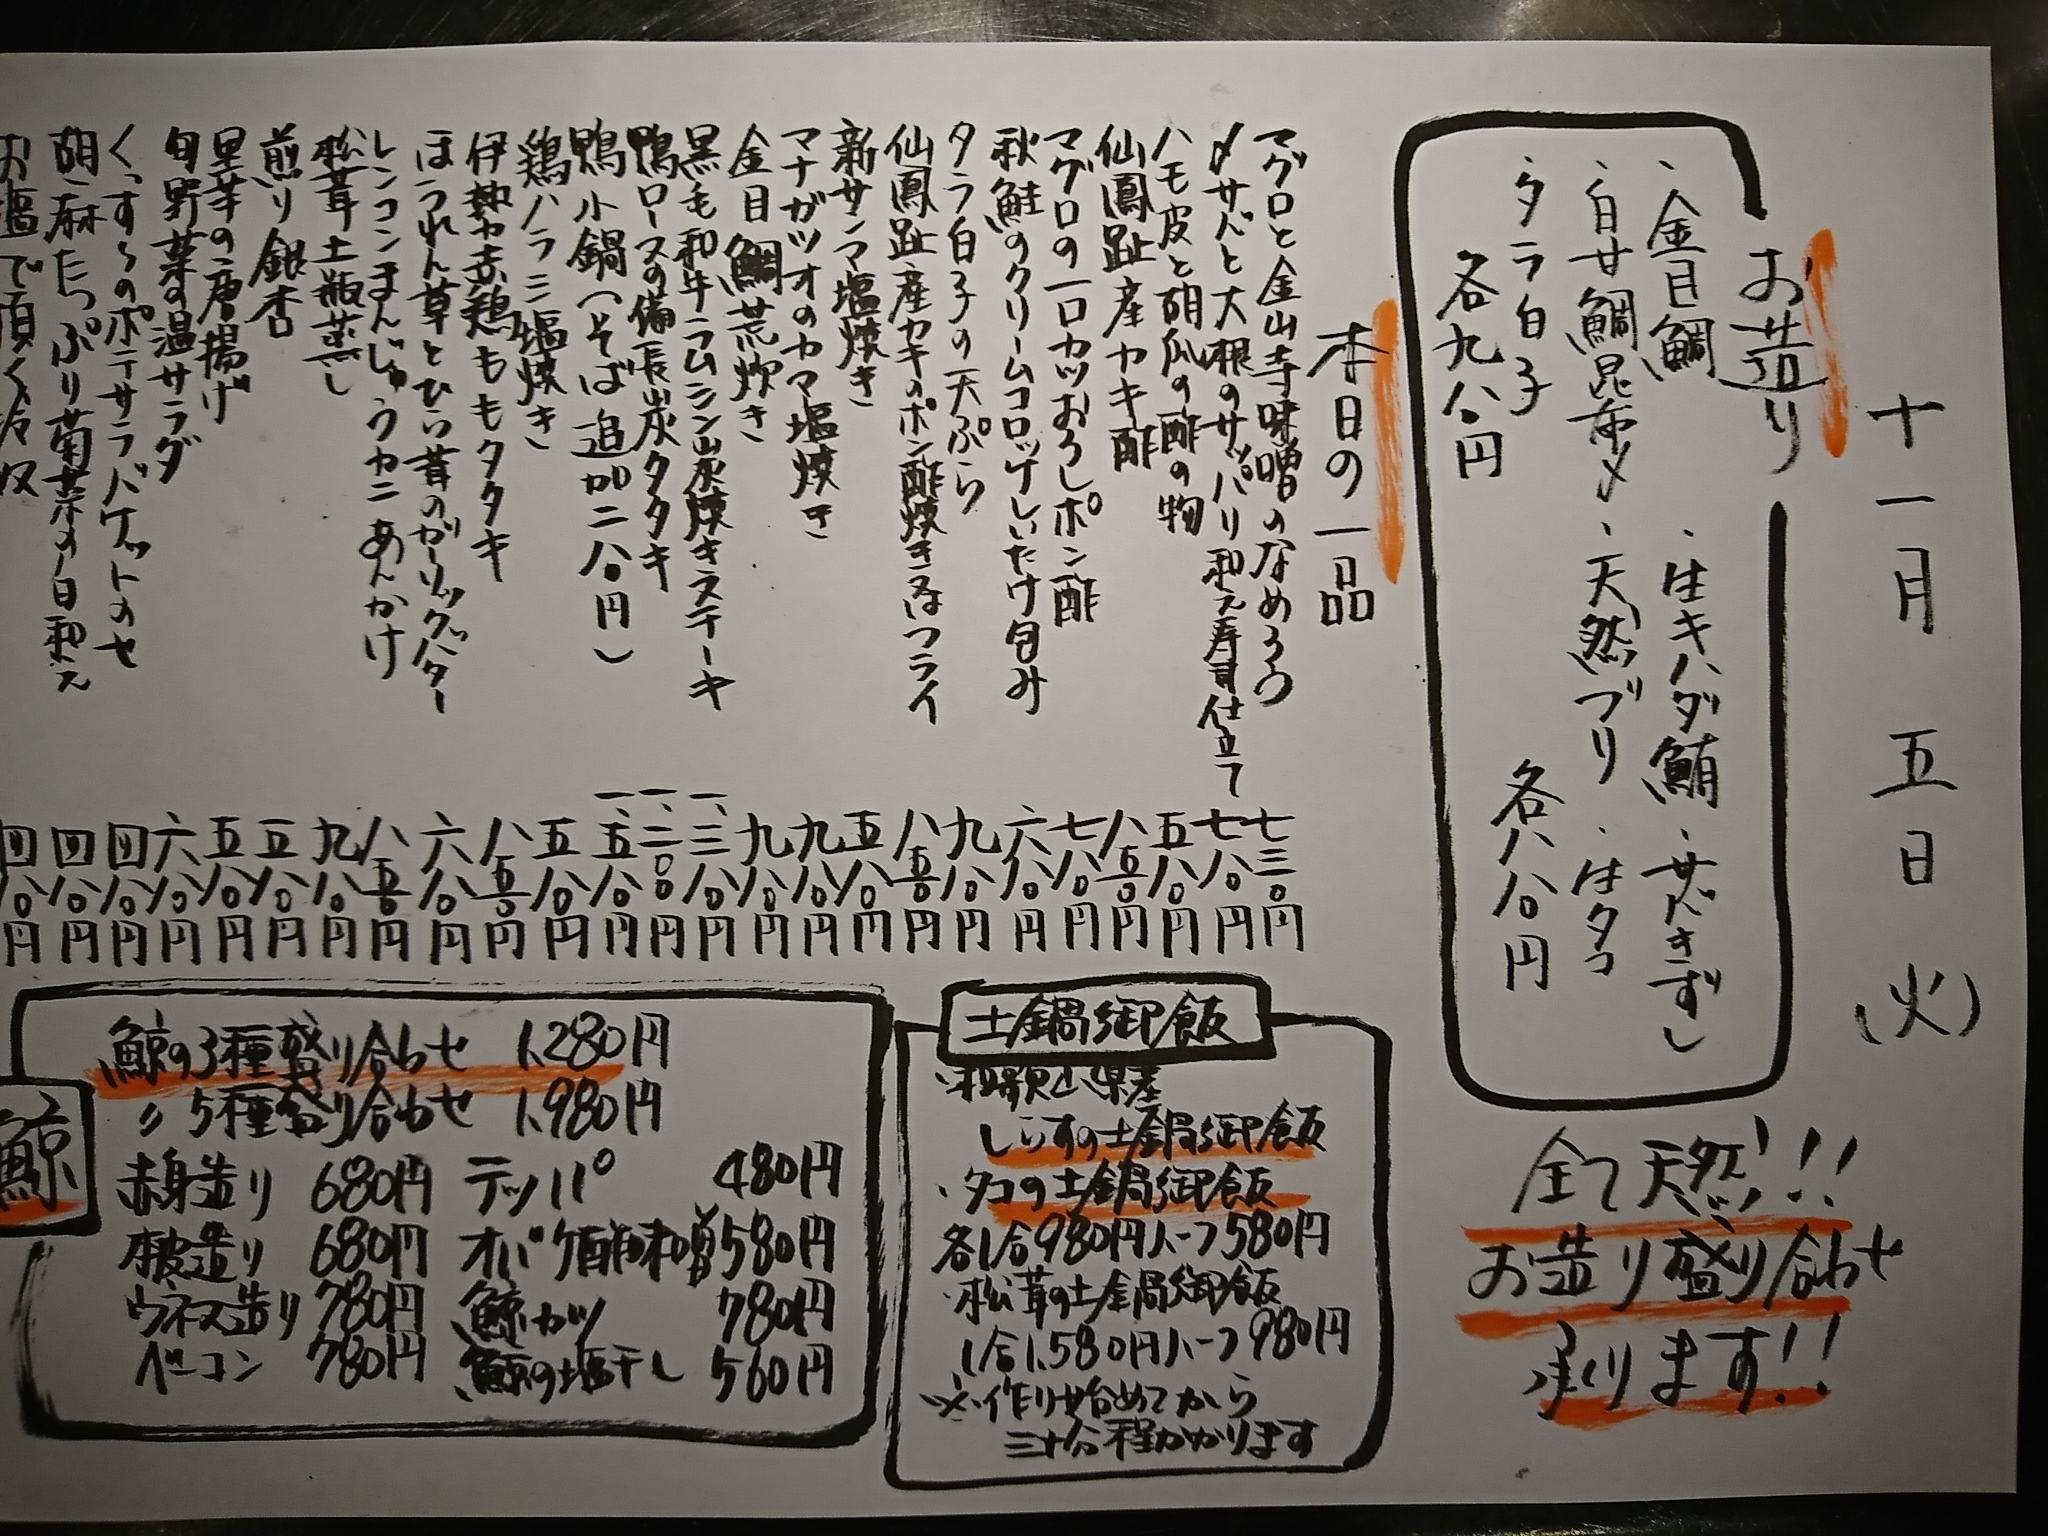 十一月五日(火)
お造り
・金目鯛
・生キハダ鮪
・サバきずし
・白甘鯛昆布〆
・天然ブリ
・生タコ
・タラ白子
各九八〇円
各八八〇円
全て天然!!
お造り盛り合わせ
承ります!!
本日の一品
マグロと金山寺味噌のなめろう 七三〇円
〆サバと大根のサッパリ和え寿司仕立て 七八〇円
ハモ皮と胡瓜の酢の物 五八〇円
仙鳳趾産カキ酢 八五〇円
マグロの一口カツおろしポン酢 七八〇円
秋鮭のクリームコロッケしいたけ包み 六八〇円
タラ白子の天ぷら 九八〇円
仙鳳趾産カキのポン酢焼きorフライ 八五〇円
新サンマ塩焼き 五八〇円
マナガツオのカマ塩焼き 九八〇円
金目鯛荒炊き 九八〇円
黒毛和牛ラムシン炭焼きステーキ 一、三八〇円
鴨ロースの備長炭タタキ 一、二〇〇円
鴨小鍋(そば追加二八〇円) 一、五八〇円
鶏ハラミ塩焼き 五八〇円
伊勢赤鶏ももタタキ 八五〇円
ほうれん草とひら茸のガーリックバター 六八〇円
レンコンまんじゅうカニあんかけ 八五〇円
松茸土瓶蒸し 九八〇円
煎り銀杏 五八〇円
里芋の唐揚げ 五八〇円
旬野菜の温サラダ 六八〇円
くっするのポテサラバケットのせ 四八〇円
胡麻たっぷり菊菜の白和え 四八〇円
お塩で頂く冷奴 四八〇円
土鍋御飯
・和歌山県産
しらすの土鍋御飯
・タコの土鍋御飯
各1合980円ハーフ580円
・松茸の土鍋御飯
1合1,580円ハーフ980円
※作り始めてから
三十分程かかります
鯨
鯨の3種盛り合わせ 1,280円
〃5種盛り合わせ 1,980円
赤身造り 680円 テッパ 480円
本皮造り 680円 オバケ酢味噌 580円
ウネス造り 780円 鯨カツ 780円
ベーコン 780円 鯨の塩干し 560円